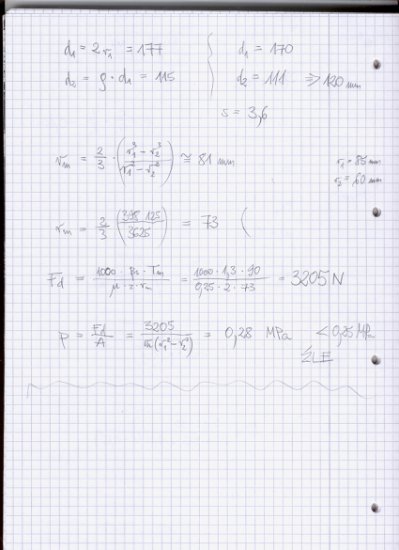 d₁ = 2·r₁ = 177
d₂ = ρ · d₁ = 115
d₁ = 170
d₂ = 111 ⇒ 120 mm
s = 3,6
rₘ = 2/3 · ((r₁³ − r₂³)/(r₁² − r₂²)) ≅ 81 mm
r₁ = 85 mm
r₂ = 60 mm
rₘ = 2/3 (398 125/3625) = 73 (
Fd = (1000 · ps · Tm)/(μ · z · rₘ) = (1000 · 1,3 · 90)/(0,25 · 2 · 73) = 3205 N
p = Fd/A = 3205/(π(r₁² − r₂²)) = 0,28 MPa < 0,25 MPa
ŹLE